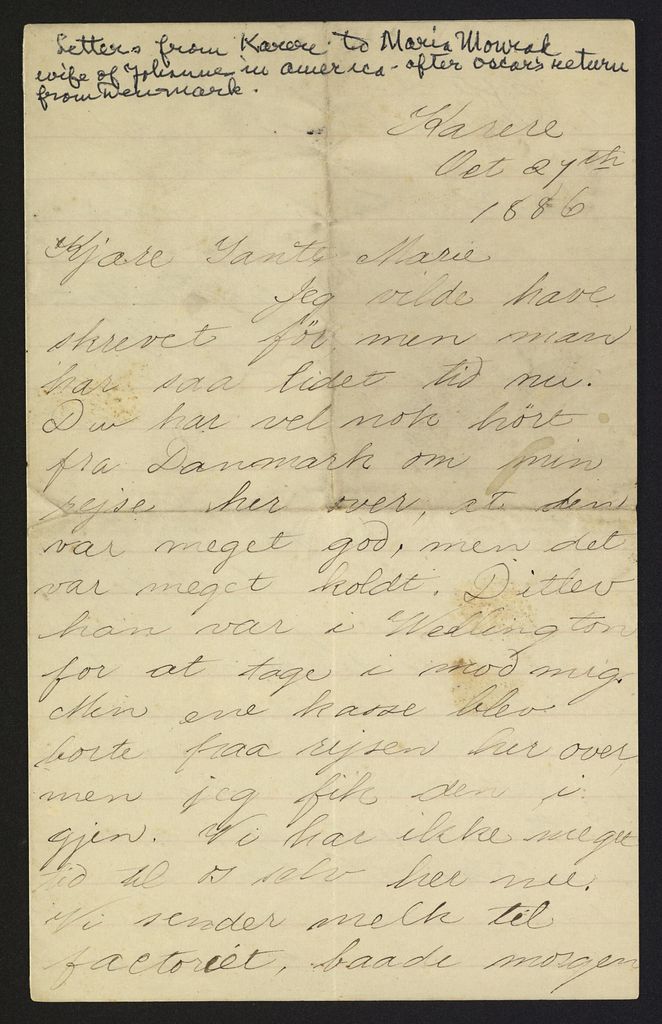 Letters from Karere to Maria Monrad
wife of Johannes in america - after oscar's return
from Denmark.
Karere
Oct 27th
1886
Kjære Tante Marie
Jeg vilde have
skrevet för men man
har saa lidet tid nu.
Du har vel nok hört
fra Danmark om min
rejse her over, at den
var meget god, men det
var meget koldt. Ditlev
han var i Wellington
for at tage i mod mig.
Min ene kasse blev
borte paa rejsen her over,
men jeg fik den i
gjen. Vi har ikke meget
tid til os selv her nu.
Vi sender melk til
factoriet, baade morgen